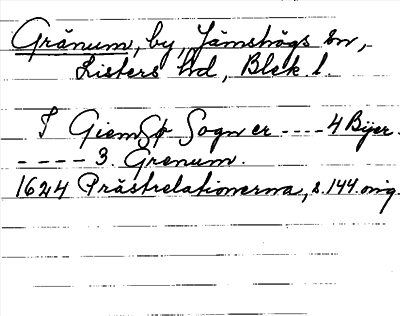 Gränum, by, Jämshögs sn,
Listers hd, Blek. l.
I Giemsø Sogn er ---- 4 Bÿer.
---- 3. Grenum.
1624 Prästrelationerna, s. 144. orig.